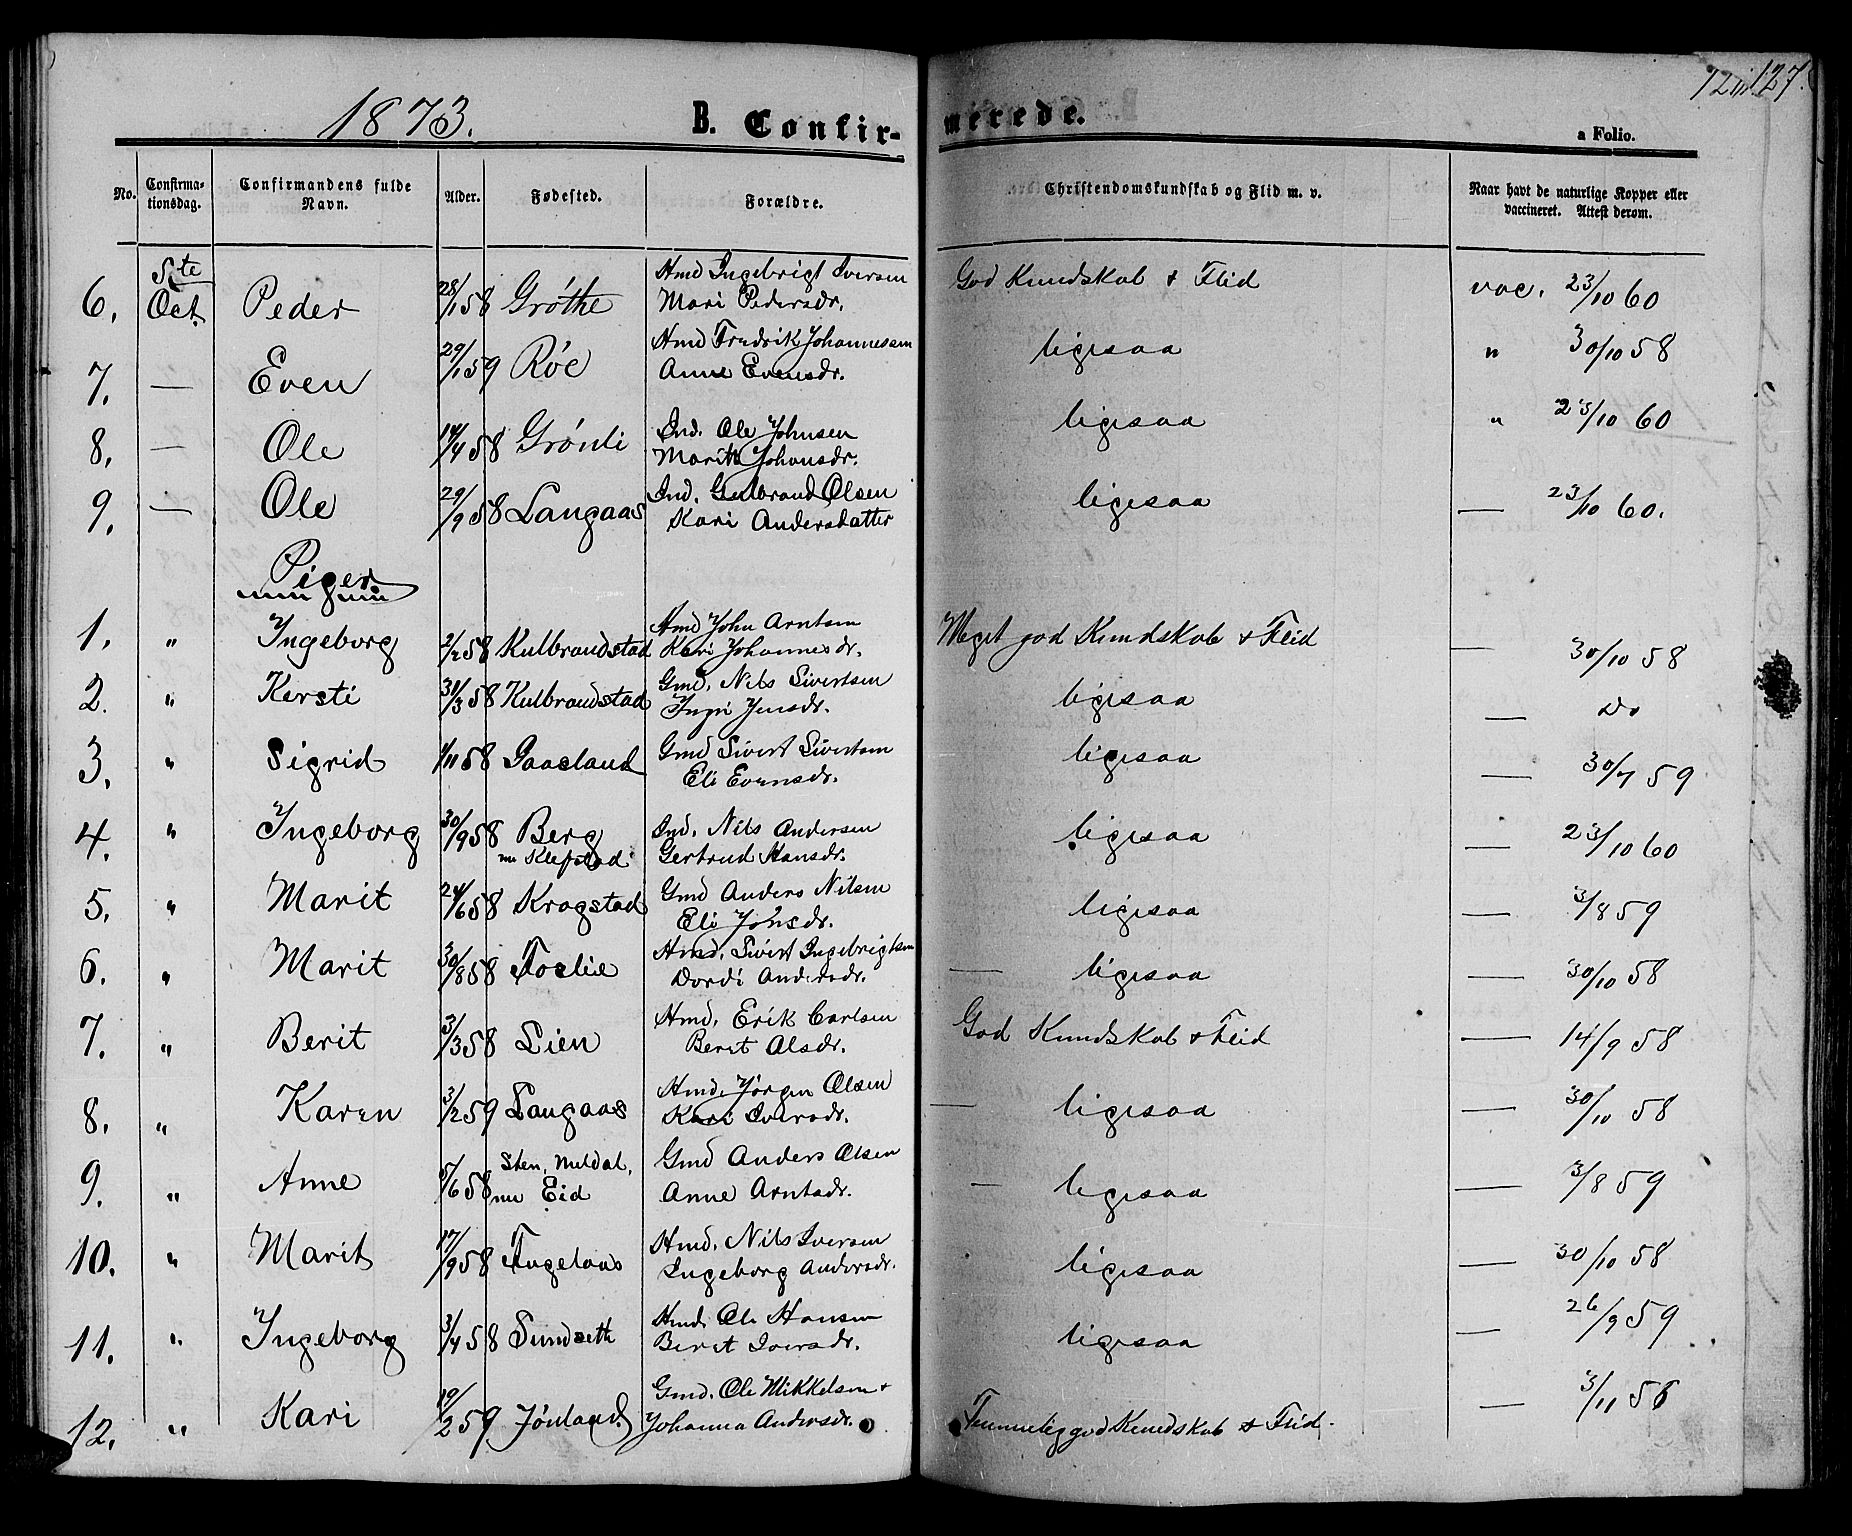 1873.
B. Confir-
merede.
127.
a Folio.
No.
Confirma-
tionsdag.
Confirmandens fulde
Navn.
Alder.
Fødested.
Forældre.
Christendomskundskab og Flid m. v.
Naar havt de naturlige Kopper eller
vaccineret. Attest derom.
6. 5te Oct. Peder 28/1 58 Gróthe Hmd Ingebrigt Iversen
Mari Pedersdr. God Kundskab & Flid vac. 23/10 60
7. — Even 29/1 59 Róe Hmd Fredrik Johannessen
Anne Evensdr. ligesaa " 30/10 58
8. — Ole 14/4 58 Grónli Ind. Ole Johnsen
Marit Johansdr. ligesaa " 23/10 60
9. — Ole 29/9 58 Langaas Ind. Gulbrand Olsen
Kari Andersdatter ligesaa — 23/10 60.
Piger
1. " Ingeborg 2/2 58 Kulbrandstad Hmd John Arntsen
Kari Johannesdr. Meget god Kundskab & Flid — 30/10 58
2. " Kersti 31/3 58 Kulbrandstad Gmd. Nils Sivertsen
Ingri Jensdr. ligesaa — Do
3. " Sigrid 1/11 58 Gaaseland Gmd Sivert Sivertsen
Eli Evensdr. ligesaa — 30/7 59
4. " Ingeborg 30/9 58 Berg Ind. Nils Andersen
nu Klefstad Gertrud Hansdr. ligesaa — 23/10 60
5. " Marit 24/6 58 Krogstad Gmd Anders Nilsen
Eli Jonsdr. ligesaa — 3/8 59
6. " Marit 30/8 58 Foslie Hmd. Sivert Ingebrigtsen
Dordi Andersdr. — ligesaa — 30/10 58
7. " Berit 3/3 58 Lien Hmd. Erik Carlsen
Berit Olsdr. God Kundskab & Flid — 14/9 58
8. " Karen 3/2 59 Langaas Hmd. Jörgen Olsen
Kari Iversdr. — ligesaa — 30/10 58
9. " Anne 5/6 58 Sten, Meldal, Gmd Anders Olsen
nu Eid Anne Arntsdr. — ligesaa — 3/8 59
10. " Marit 17/9 58 Fugelaas Hmd. Nils Iversen
Ingeborg Andersdr. ligesaa — 30/10 58
11. " Ingeborg 3/4 58 Sundseth Hmd. Ole Hansen
Berit Iversdr. ligesaa — 26/9 59
12. " Kari 19/2 59 Jónland Gmd. Ole Mikkelsen +
Johanna Andersdr. Temmelig god Kundskab & Flid. — 3/11 56